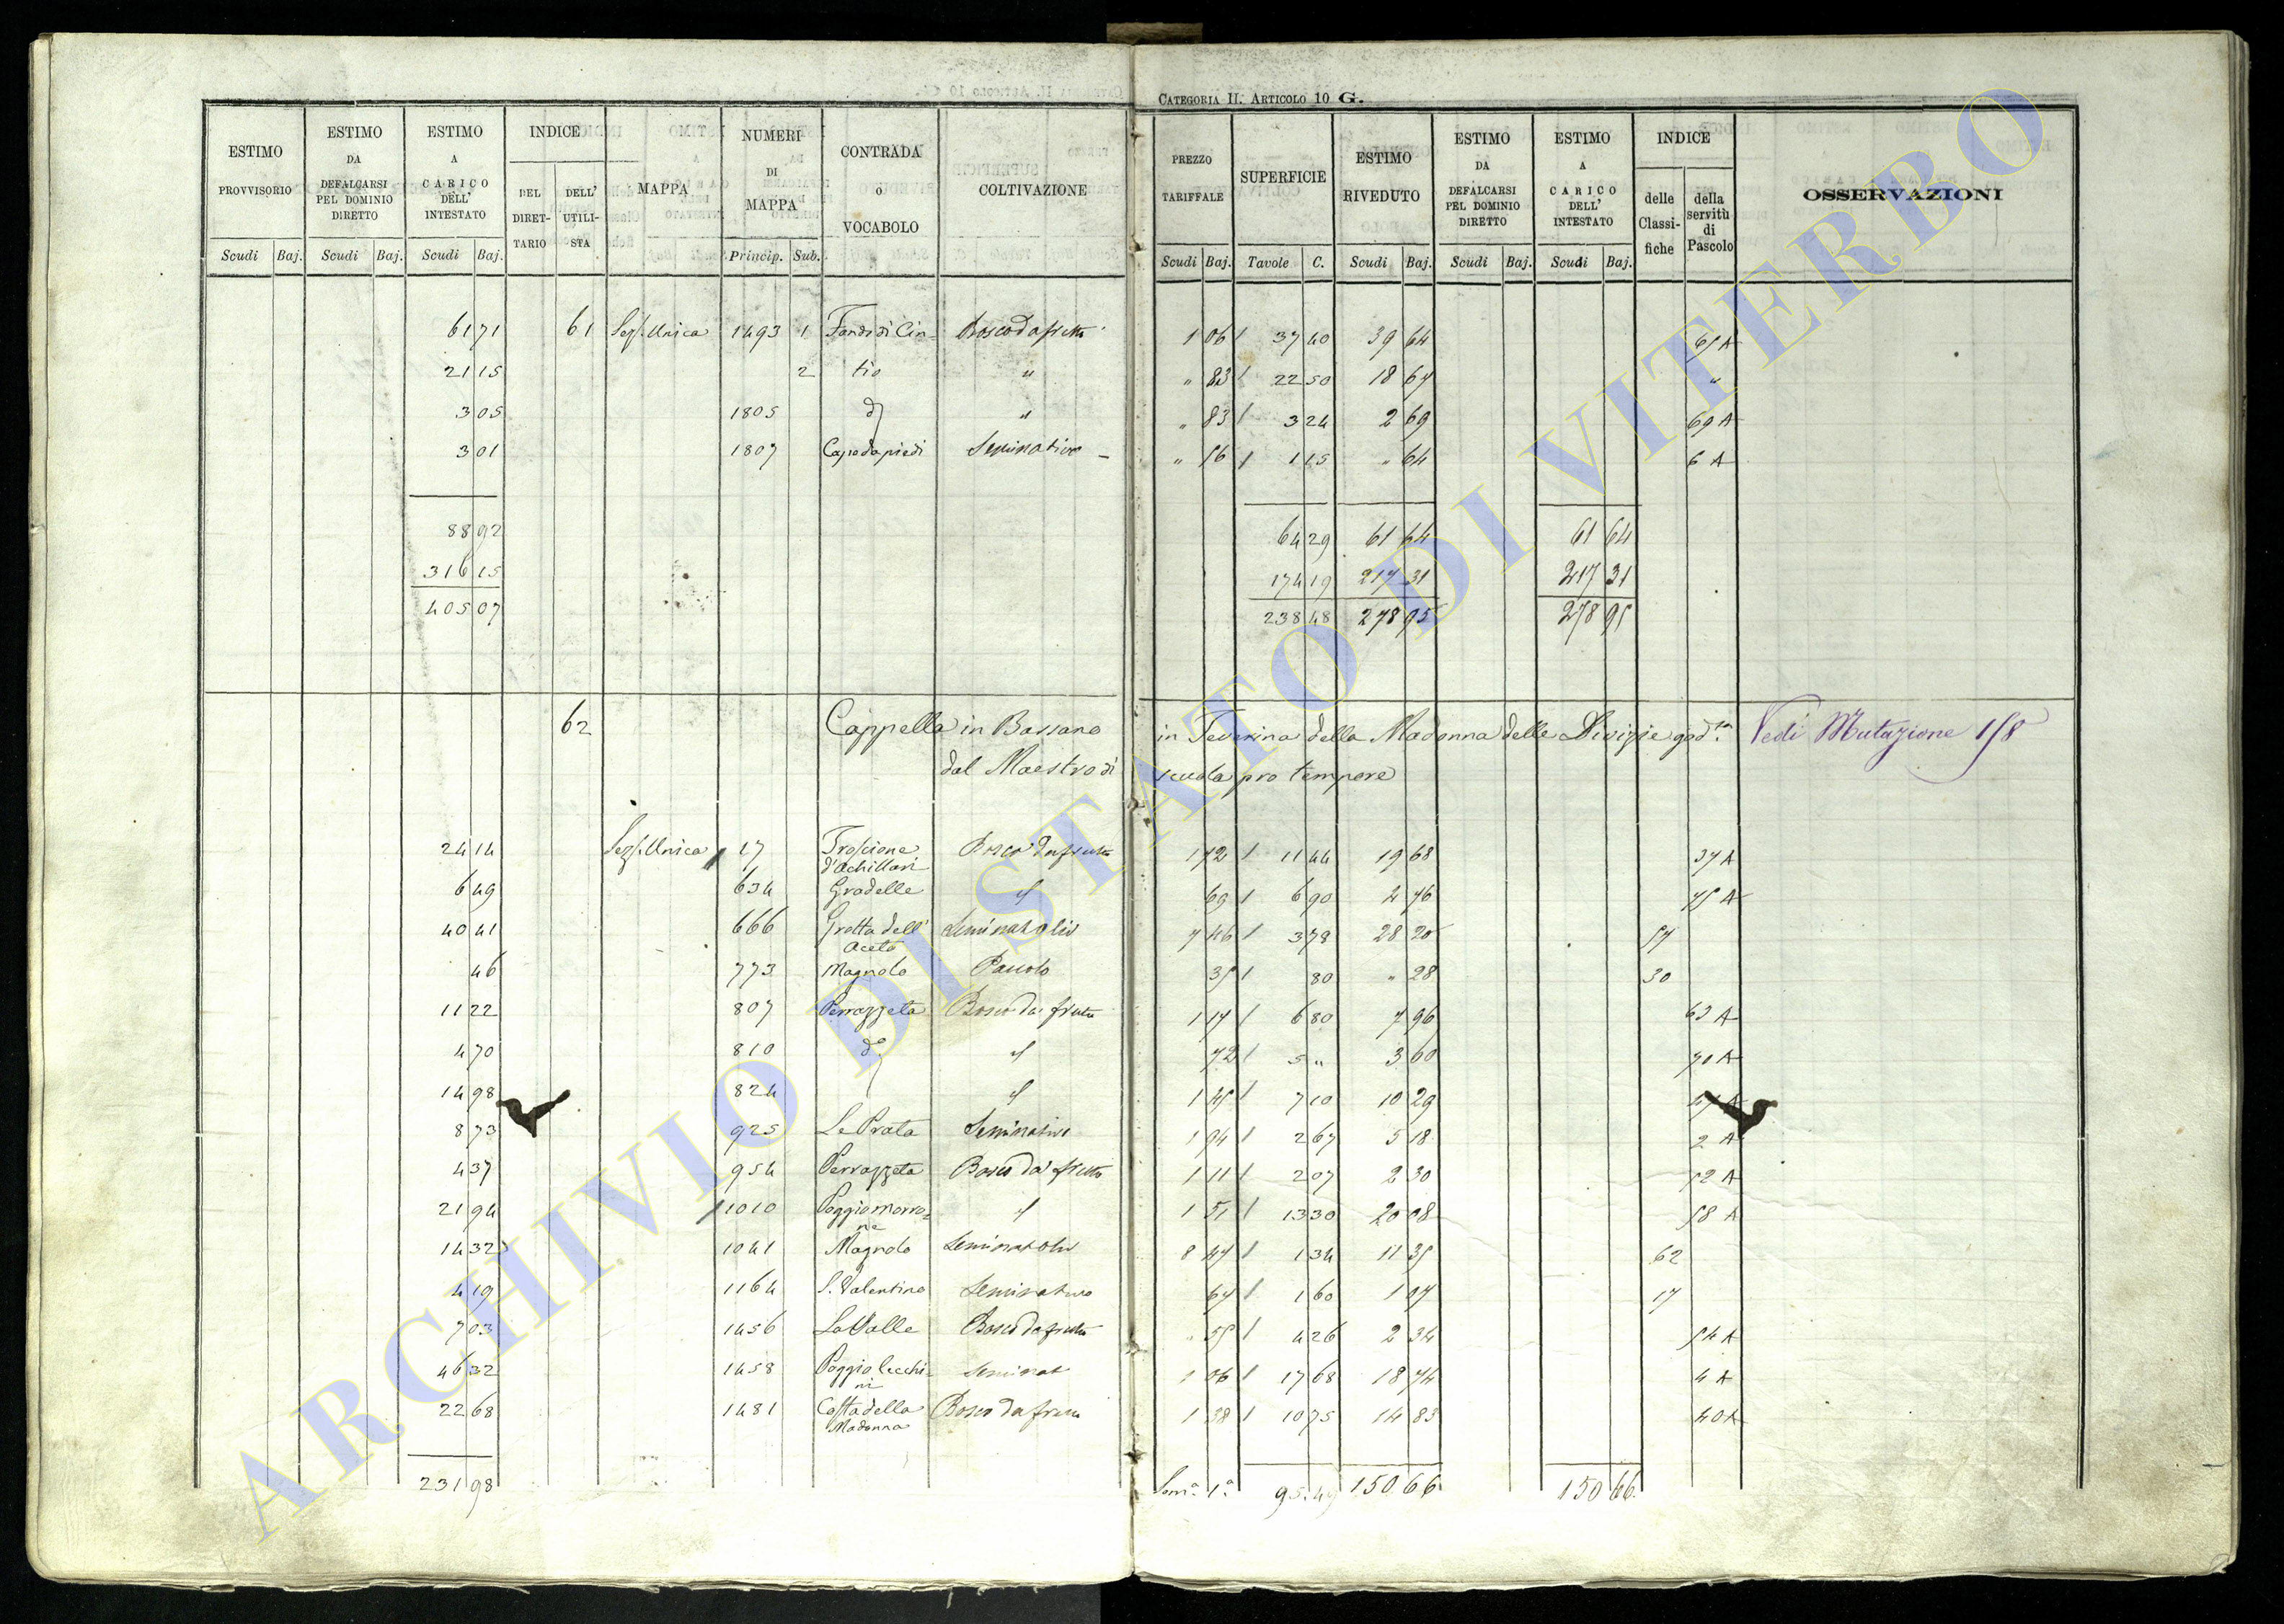 CATEGORIA II. ARTICOLO 10 G.
ESTIMO PROVVISORIO | ESTIMO DA DEFALCARSI PEL DOMINIO DIRETTO | ESTIMO A CARICO DELL' INTESTATO | INDICE DEL DIRETTARIO | DELL' UTILISTA | MAPPA | NUMERI DI MAPPA | CONTRADA O VOCABOLO | COLTIVAZIONE | PREZZO TARIFFALE | SUPERFICIE | ESTIMO RIVEDUTO | ESTIMO DA DEFALCARSI PEL DOMINIO DIRETTO | ESTIMO A CARICO DELL' INTESTATO | INDICE delle Classifiche | della servitù di Pascolo | OSSERVAZIONI
Scudi Baj. Scudi Baj. Scudi Baj. Princip. Sub. Scudi Baj. Tavole C. Scudi Baj. Scudi Baj. Scudi Baj.
61 71 61 Sez. Unica 1493 1 Fondi di Cin- Bosco da frutto 1 06 37 40 39 64 65 A
21 15 2 tio " " 83 22 50 18 67 "
3 05 1805 d° " " 83 3 24 2 69 69 A
3 01 1807 Capo da piedi Seminativo " 56 1 15 " 64 6 A
88 92 64 29 61 64 61 64
316 15 174 19 217 31 217 31
405 07 238 48 278 95 278 95
62 Cappella in Bassano in Teverina della Madonna delle Divizie god.ta Vedi Mutazione 158
dal Maestro di scuola pro tempore
24 14 Sez. Unica 17 Troscione d'Achillari Bosco da frutto 1 72 11 44 19 68 37 A
6 49 634 Gradelle " 69 6 90 4 76 75 A
40 41 666 Grotta dell' Aceto Seminat oliv 7 46 3 78 28 20 57
46 773 Magnolo Pascolo 35 80 " 28 30
11 22 807 Perrazzeta Bosco da frutto 1 17 6 80 7 96 63 A
4 70 810 d° " 72 5 " 3 60 70 A
14 98 824 " 1 45 7 10 10 29
8 73 925 Le Prata Seminativo 1 94 2 67 5 18 2 A
4 37 954 Perrazzeta Bosco da frutto 1 11 2 07 2 30 52 A
21 94 1010 Poggio morro= ne " 1 51 13 30 20 08 58 A
14 32 1041 Magnolo Seminat oliv 8 47 1 34 11 35 62
4 19 1164 S. Valentino Seminativo 67 1 60 1 07 17
7 03 1456 La Valle Bosco da frutto " 55 4 26 2 34 54 A
46 32 1458 Poggio Cecchi- ni Seminat 1 06 17 68 18 74 4 A
22 68 1481 Costa della Madonna Bosco da frutto 1 38 10 75 14 83 40 A
231 98 Som.a 1.a 95.49 150 66 150 66
ARCHIVIO DI STATO DI VITERBO